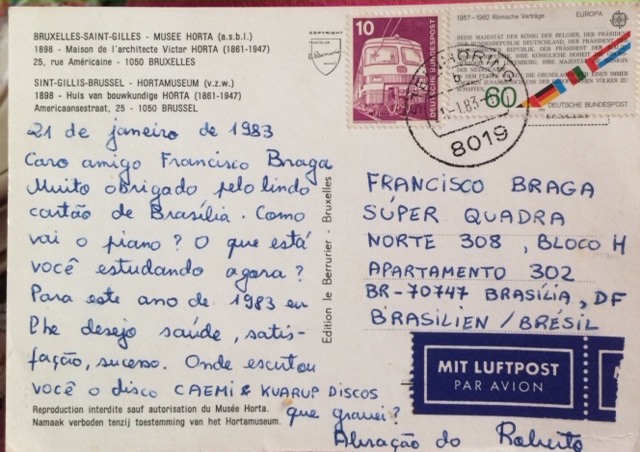 BRUXELLES-SAINT-GILLES - MUSEE HORTA (a.s.b.l.)
1898 - Maison de l'architecte Victor HORTA (1861-1947)
25, rue Américaine - 1050 BRUXELLES
SINT-GILLIS-BRUSSEL - HORTAMUSEUM (v.z.w.)
1898 - Huis van bouwkundige HORTA (1861-1947)
Americaansestraat, 25 - 1050 BRUSSEL
COPYRIGHT
21 de janeiro de 1983
Caro amigo Francisco Braga
Muito obrigado pelo lindo
cartão de Brasília. Como
vai o piano? O que está
você estudando agora?
Para este ano de 1983 eu
lhe desejo saúde, satis-
fação, sucesso. Onde escutou
você o disco CAEMI & KUARUP DISCOS
que gravei?
Abração do Roberto
Reproduction interdite sauf autorisation du Musée Horta.
Namaak verboden tenzij toestemming van het Hortamuseum.
Edition le Berrurier - Bruxelles
10
DEUTSCHE BUNDESPOST
1957-1982 Römische Verträge
EUROPA
60
DEUTSCHE BUNDESPOST
83
8019
FRANCISCO BRAGA
SÚPER QUADRA
NORTE 308, BLOCO H
APARTAMENTO 302
BR-70747 BRASÍLIA, DF
BRASILIEN / BRÉSIL
MIT LUFTPOST
PAR AVION
MIT
P